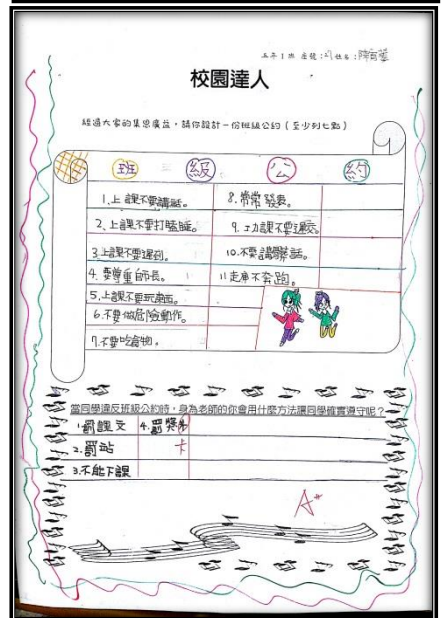 五年1班 座號:21 姓名:陳
校園達人
經過大家的集思廣益,請你設計一份班級公約(至少列七點)
班 級 公 約
1.上課不要講話。
2.上課不要打瞌睡。
3.上課不要遲到。
4.要尊重師長。
5.上課不要玩東西。
6.不要做危險動作。
7.不要吃食物。
8.常常發表。
9.功課不要遲交。
10.不要講髒話。
11走廊不奔跑。
當同學違反班級公約時,身為老師的你會用什麼方法讓同學確實遵守呢?
1.罰課文
2.罰站
3.不能下課
4.罰獎勵
卡
A+